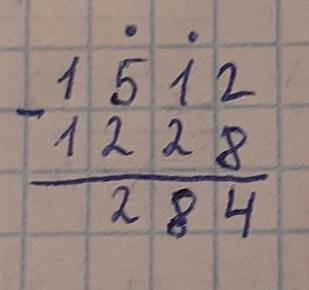 1512
-
1228
284